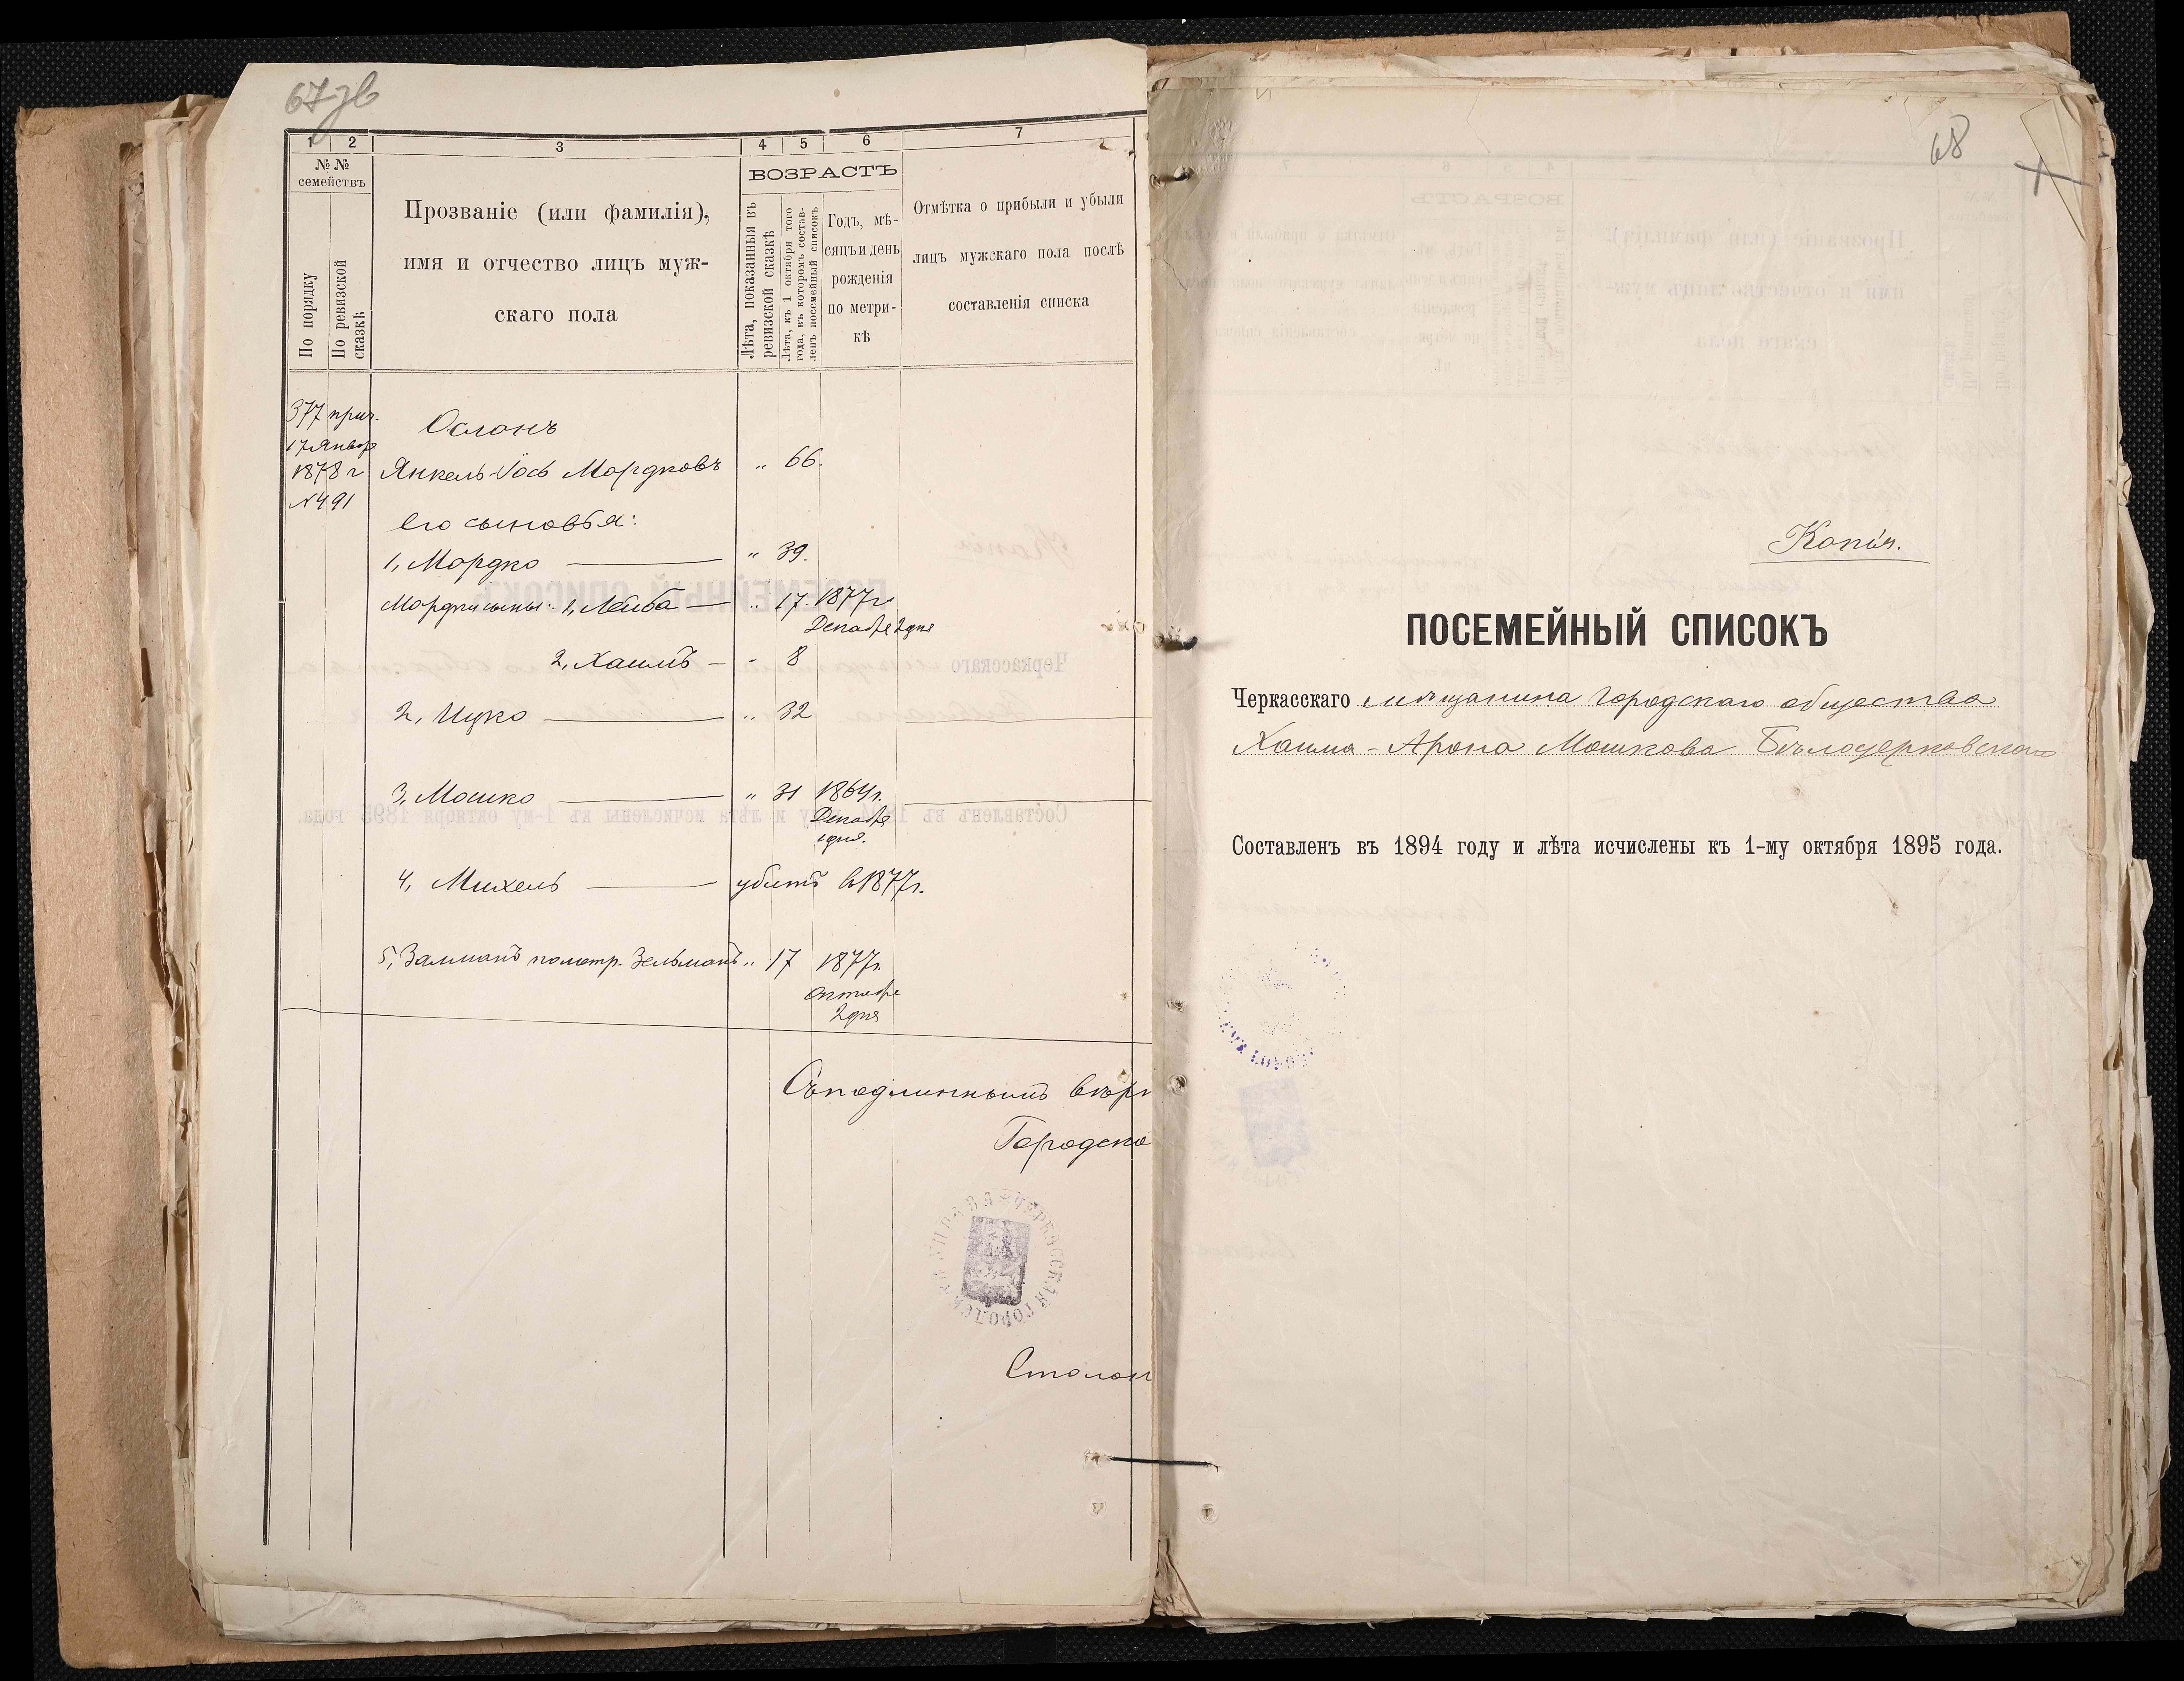 67 зв
1 2 3 4 5 6 7
№ № семействъ
По порядку
По ревизской сказкѣ
Прозваніе (или фамилія),
имя и отчество лицъ муж-
скаго пола
ВОЗРАСТЪ
Лѣта, показанныя въ
ревизской сказкѣ
Лѣта, къ 1 октября того
года, въ которомъ состав-
ленъ посемейный списокъ
Годъ, мѣ-
сяцъ и день
рожденія
по метри-
кѣ
Отмѣтка о прибыли и убыли
лицъ мужскаго пола послѣ
составленія списка
377 прич.
17 Январ
1878 г
№491
Ослонъ
Янкель-Іось Мордковъ " 66.
Его сыновья:
1, Мордко — " 39.
Мордки сыны: 1, Лейба — " 17. 1877 г.
Декабря 2 дня
2, Хаимъ — " 8
2, Ицко — " 32
3, Мошко — " 31 1864 г.
Декабря
1 дня.
4, Михель — убитъ в 1877 г.
5, Залманъ по метр. Зельманъ " 17 1877 г.
Октября
2 дня
Съ подлиннымъ вѣрн
Городско
ЧЕРКАССКАЯ ГОРОДСКАЯ УПРАВА
Столон
68
Копія.
ПОСЕМЕЙНЫЙ СПИСОКЪ
Черкасскаго мѣщанина городскаго общества
Хаима-Арона Мошкова Бѣлоцерковскаго
Составленъ въ 1894 году и лѣта исчислены къ 1-му октября 1895 года.